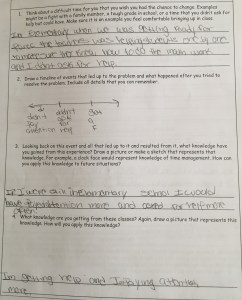 1. Think about a difficult time for you that you wish you had the chance to change. Examples
might be a fight with a family member, a tough grade in school, or a time that you didn't ask for
help but could have. Make sure it is an example you feel comfortable bringing up in class.
In elementary when we was getting ready for
the teachers was
we how to do the work
and I dont ask for help.
2. Draw a timeline of events that led up to the problem and what happened after you tried to
resolve the problem. Include all details that you can remember.
didn't
didn't
got
pay
ask
a
attention
for
F
help
3. Looking back on this event and all that led up to it and resulted from it, what knowledge have
you gained from this experience? Draw a picture or make a sketch that represents that
knowledge. For example, a clock face would represent knowledge of time management. How can
you apply this knowledge to future situations?
If I were still in elementary school I would
have attention more and asked for help more
often.
4. What knowledge are you getting from these classes? Again, draw a picture that represents this
knowledge. How will you apply this knowledge?
Im getting help and
more